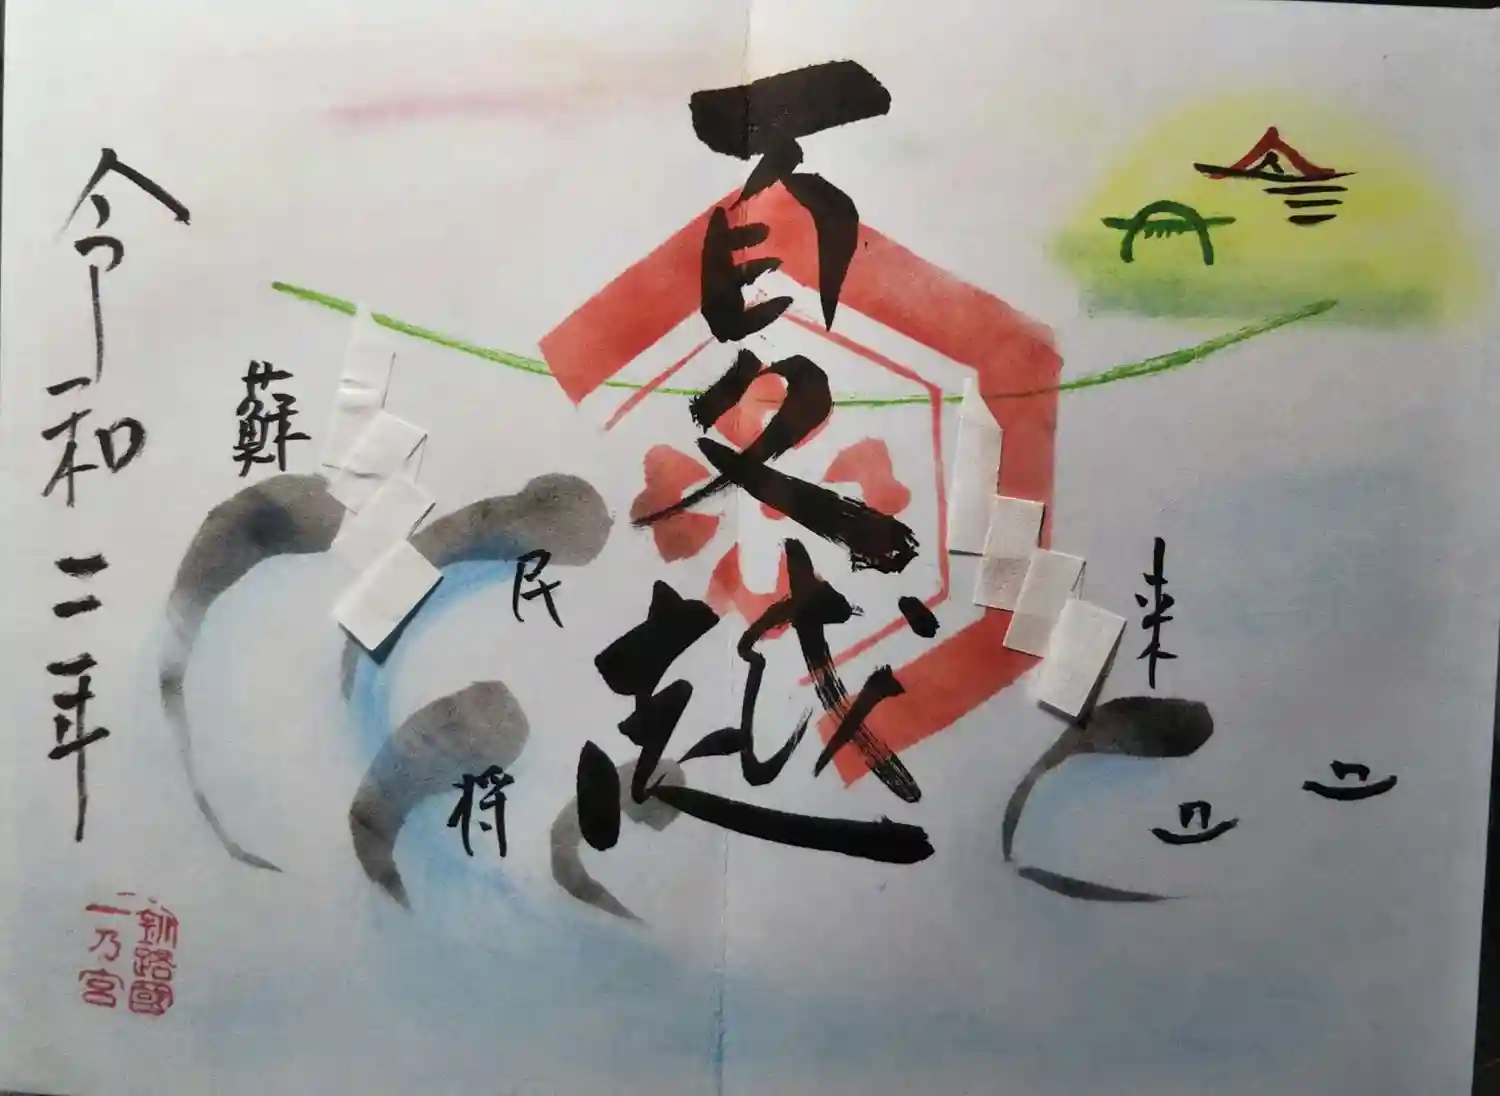 夏越
蘇
民
将
来
令和二年
釧路國
一乃宮